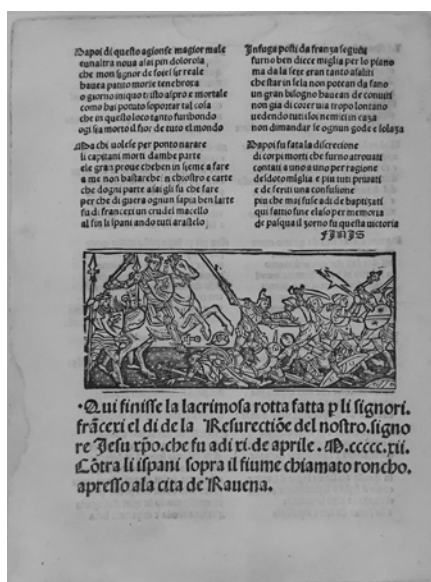 Dapoi di questo agionse magior male
eunaltra noua asai piu dolorosa
che mon signor de foies sir reale
hauea patito morte tenebrosa
o giorno iniquo tristo aspro e mortale
come hai potuto soportar tal cosa
che in questo loco tanto furibondo
ogi sia morto il fior de tuto el mondo
Ma chi uolese per ponto narare
li capitani morti dambe parte
e le gran proue che ben in sieme a fare
a me non bastarebe in chiostro e carte
che dogni parte asai gli fu che fare
per che di guera ognun sapia ben larte
fu di francesi un crudel macello
al fin li spani ando tuti a rastelo
In fuga posti da franza seguiti
furno ben diece miglia per lo piano
ma da la sete eran tanto asaliti
che star in sela non potean da sano
un gran bisogno hauean de conuiti
non gia di coreruia tropo lontano
uedendo tuti isoi nemici in caza
non dimandar se ognun gode e solaza
Dapoi fu fata la discrecione
di corpi morti che furno atrouati
contati a uno a uno per ragione
desdoto miglia e piu tuti priuati
e de feriti una confusione
piu che mai fuse a di de baptizati
qui fatto fine el aso per memoria
de pasqua il zorno fu questa uictoria
FINIS
·Qui finisse la lacrimosa rotta fatta p li signori.
frācexi el di de la Resurectiōe del nostro.signo
re Jesu xpo.che fu adi xi.de aprile.M.ccccc.xii.
Cōtra li ispani sopra il fiume chiamato roncho.
apresso ala cita de Rauena.